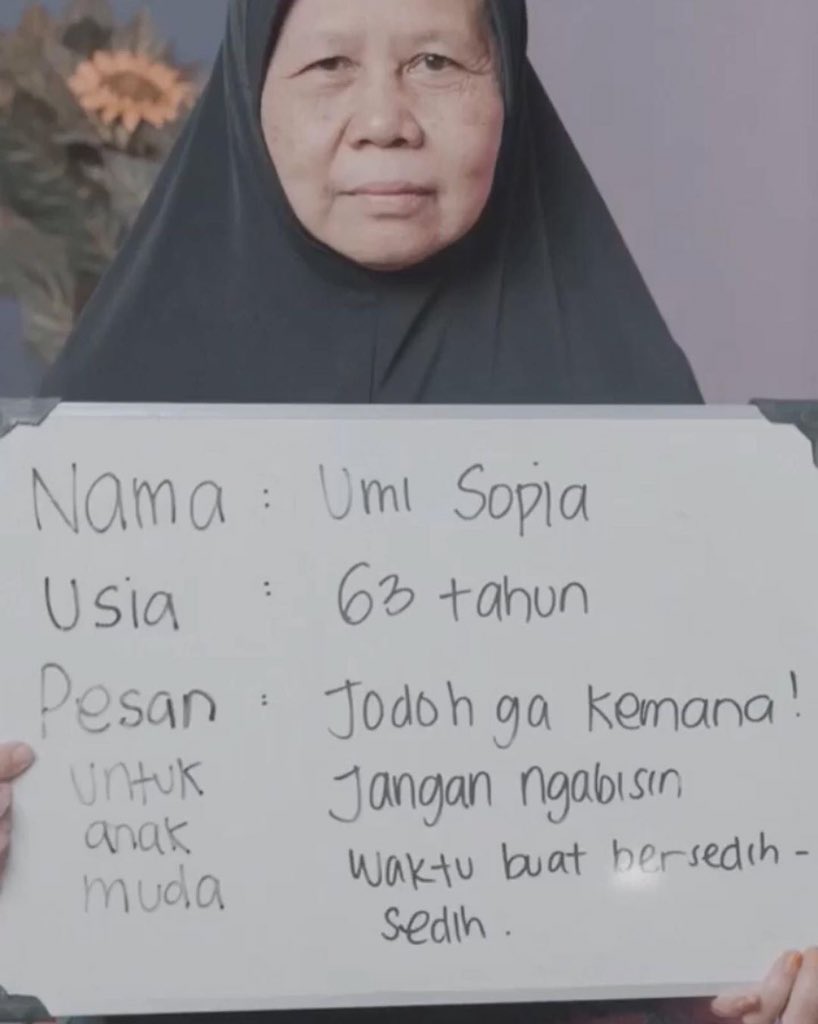 Nama : Umi Sopia
Usia : 63 tahun
Pesan : Jodoh ga kemana!
untuk Jangan ngabisin
anak waktu buat bersedih-
muda sedih.